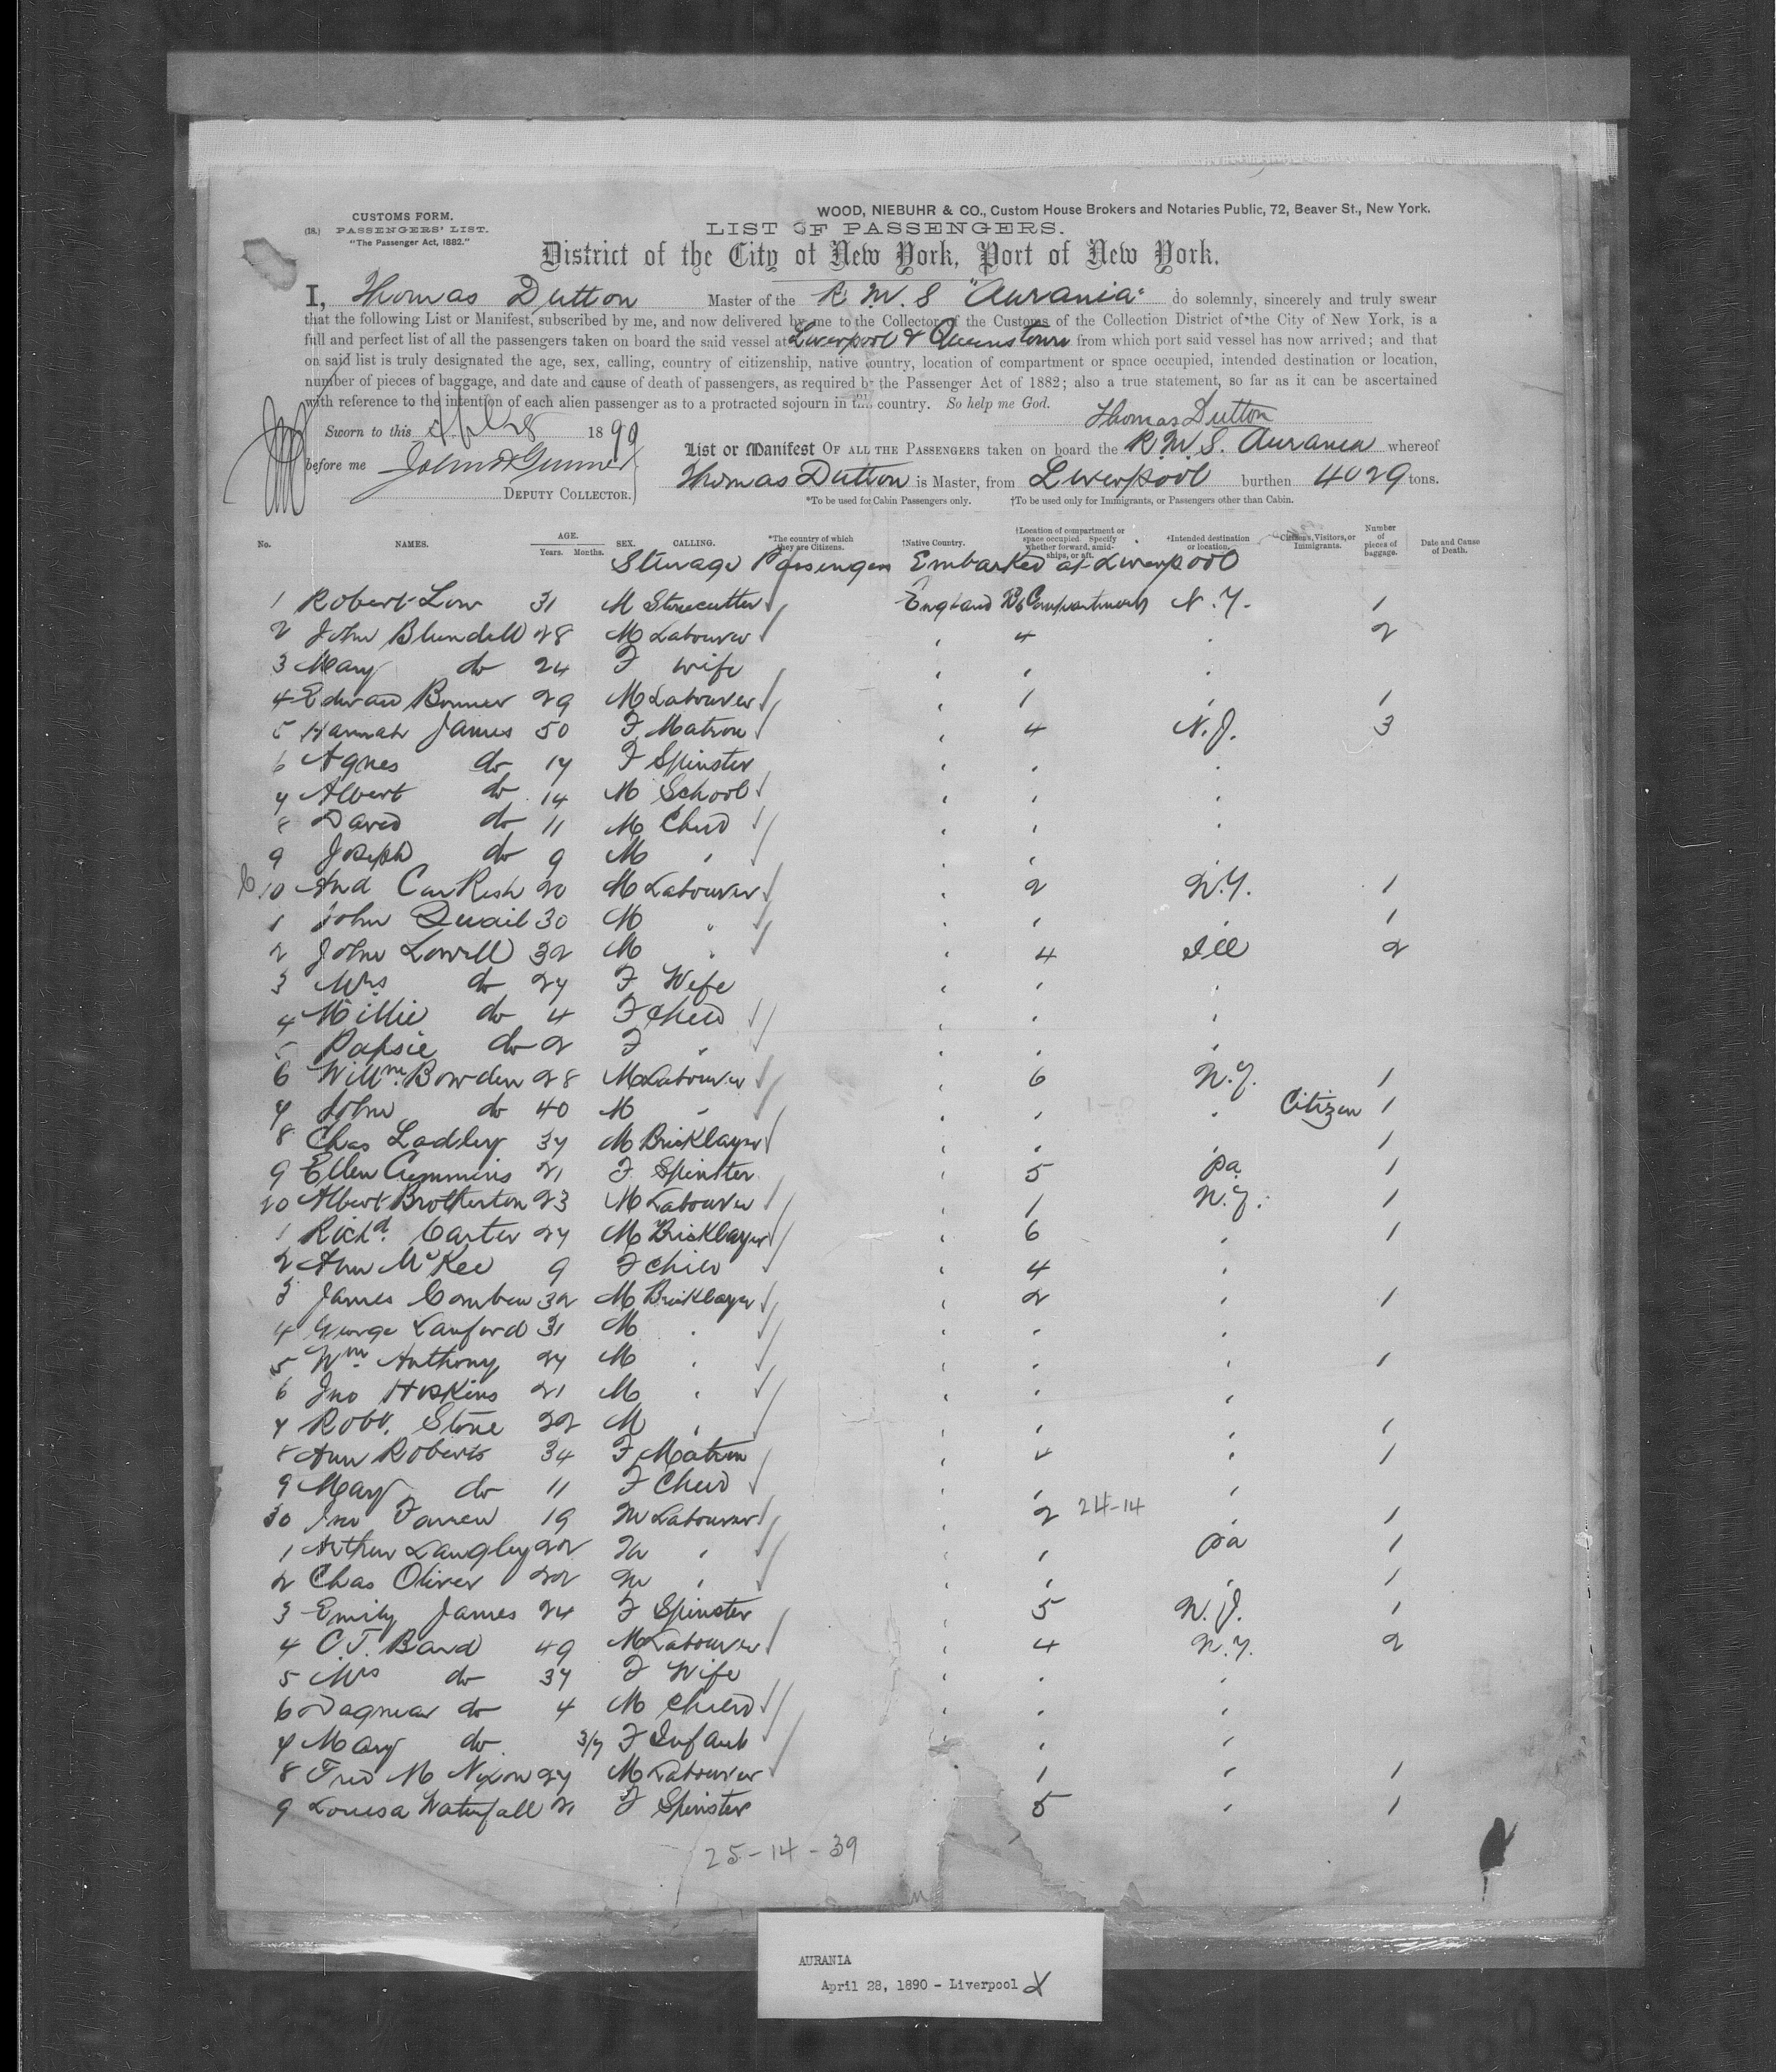 WOOD, NIEBUHR & CO., Custom House Brokers and Notaries Public, 72, Beaver St., New York.
CUSTOMS FORM.
(18.) PASSENGERS' LIST.
"The Passenger Act, 1882."
LIST OF PASSENGERS.
District of the City of New York, Port of New York.
I, Thomas Dutton Master of the R.M.S "Aurania" do solemnly, sincerely and truly swear
that the following List or Manifest, subscribed by me, and now delivered by me to the Collector of the Customs of the Collection District of the City of New York, is a
full and perfect list of all the passengers taken on board the said vessel at Liverpool & Queenstown from which port said vessel has now arrived; and that
on said list is truly designated the age, sex, calling, country of citizenship, native country, location of compartment or space occupied, intended destination or location,
number of pieces of baggage, and date and cause of death of passengers, as required by the Passenger Act of 1882; also a true statement, so far as it can be ascertained
with reference to the intention of each alien passenger as to a protracted sojourn in this country. So help me God.
Thomas Dutton
Sworn to this 28 1890
before me
DEPUTY COLLECTOR.
List or Manifest OF ALL THE PASSENGERS taken on board the R.M.S. Aurania whereof
Thomas Dutton is Master, from Liverpool burthen 4029 tons.
*To be used for Cabin Passengers only. †To be used only for Immigrants, or Passengers other than Cabin.
No. NAMES. AGE. Years. Months. SEX. CALLING. *The country of which they are Citizens. †Native Country. †Location of compartment or space occupied. Specify whether forward, amidships, or aft. †Intended destination or location. Citizens, Visitors, or Immigrants. Number of pieces of baggage. Date and Cause of Death.
Steerage Passengers Embarked at Liverpool
1 Robert Low 31 M Stonecutter England Compartment N.Y. 1
2 John Blundell 28 M Labourer " 4 " 2
3 Mary do 24 F Wife " " "
4 Edward Bonner 29 M Labourer " 1 " 1
5 Hannah James 50 F Matron " 4 N.J. 3
6 Agnes do 17 F Spinster " " "
7 Albert do 14 M School " " "
8 David do 11 M Child " " "
9 Joseph do 9 M " " "
10 And 20 M Labourer " 2 N.Y. 1
1 John Quail 30 M " " " " 1
2 John Lowell 32 M " " 4 Ill 2
3 Mrs do 27 F Wife " " "
4 Millie do 4 F Child " " "
5 Popsie do 2 F " " " "
6 Willm. Bowden 28 M Labourer " 6 N.Y. 1
7 John do 40 M " " " " Citizen 1
8 Chas Ladley 37 M Bricklayer " " 1
9 Ellen Cummins 21 F Spinster " 5 Pa 1
20 Albert Brotherton 23 M Labourer " 1 N.Y. 1
1 Richd. Carter 27 M Bricklayer " 6 " 1
2 Ann McKee 9 F Child " 4 "
3 James Comben 32 M Bricklayer " 2 " 1
4 George Lanford 31 M " " " "
5 Wm Anthony 27 M " " " " 1
6 Jno Hoskins 21 M " " " "
7 Robt. Stone 22 M " " " 1
8 Ann Roberts 34 F Matron 4 " 1
9 Mary do 11 F Child " " "
30 Jno 19 M Labourer " 2 24-14 " 1
1 Arthur Langley 22 M " " " Pa 1
2 Chas Oliver 22 M " " " 1
3 Emily James 24 F Spinster " 5 N.J. 1
4 C.J. Band 49 M Labourer " 4 N.Y. 2
5 Mrs do 37 F Wife " " "
6 Dagmar do 4 M Child " " "
7 Mary do 3/7 F Infant " "
8 Fred M Nixon 27 M Labourer 1 " 1
9 Louisa Waterfall 21 F Spinster 5 " 1
25-14-39
AURANIA
April 28, 1890 - Liverpool